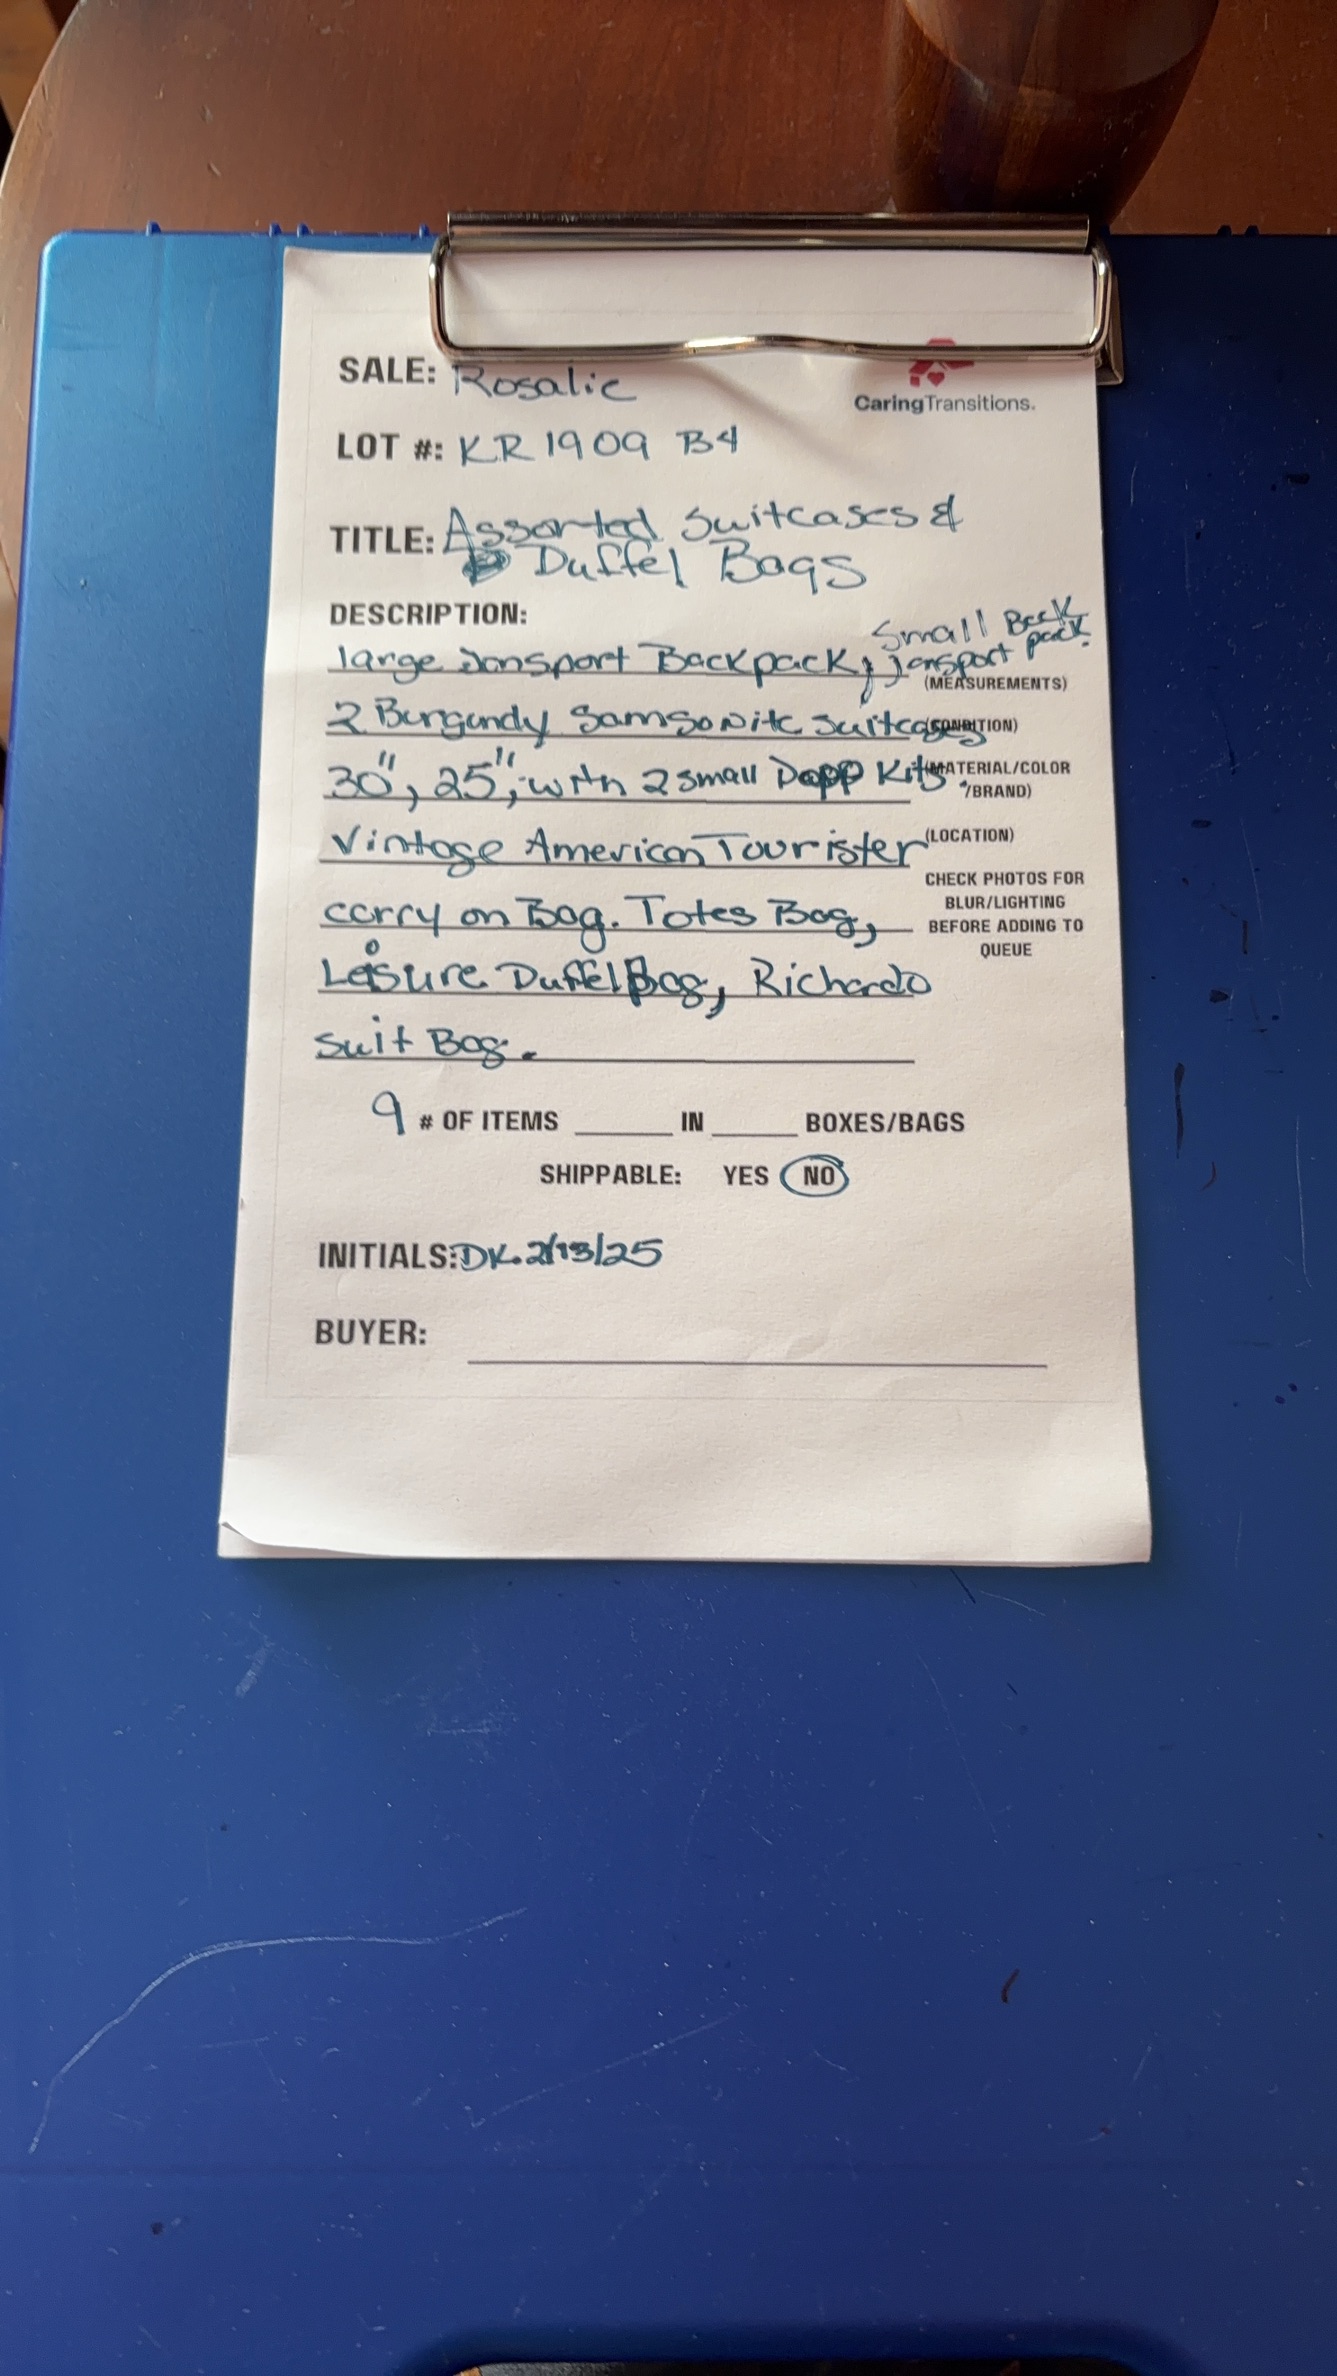 SALE: Rosalie
CaringTransitions.
LOT #: KR1909 B4
TITLE: Assorted Suitcases &
Duffel Bags
DESCRIPTION:
large Jansport Backpack, Jansport Small Back pack.
(MEASUREMENTS)
2 Burgundy Samsonite Suitcases (CONDITION)
30", 25", with 2 small Dopp Kits. (MATERIAL/COLOR
/BRAND)
Vintage American Tourister (LOCATION)
CHECK PHOTOS FOR
BLUR/LIGHTING
carry on Bag. Totes Bag, BEFORE ADDING TO
QUEUE
Leisure Duffel Bag, Richardo
suit Bag.
9 # OF ITEMS IN BOXES/BAGS
SHIPPABLE: YES NO
INITIALS: DK. 2/13/25
BUYER: